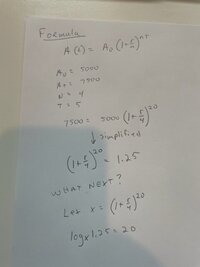 Formula
A(t) = A₀ (1+r/n)^nT
A₀ = 5000
A_T = 7500
N = 4
T = 5
7500 = 5000 (1+r/4)^20
↓ simplified
(1+r/4)^20 = 1.25
WHAT NEXT?
Let x = (1+r/4)^20
logx 1.25 = 20